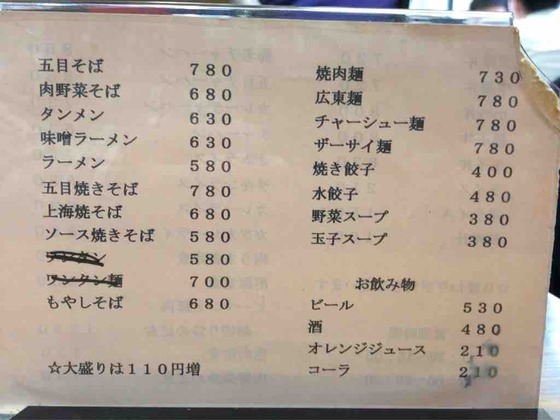 五目そば 780
肉野菜そば 680
タンメン 630
味噌ラーメン 630
ラーメン 580
五目焼きそば 780
上海焼そば 680
ソース焼きそば 580
580
ワンタン麺 700
もやしそば 680
☆大盛りは110円増
焼肉麺 730
広東麺 780
チャーシュー麺 780
ザーサイ麺 780
焼き餃子 400
水餃子 480
野菜スープ 380
玉子スープ 380
お飲み物
ビール 530
酒 480
オレンジジュース 210
コーラ 210